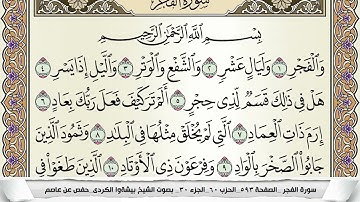 سورة الفجر
بِسْمِ اللَّهِ الرَّحْمَٰنِ الرَّحِيمِ
وَالْفَجْرِ ١ وَلَيَالٍ عَشْرٍ ٢ وَالشَّفْعِ وَالْوَتْرِ ٣ وَاللَّيْلِ إِذَا يَسْرِ ٤
هَلْ فِي ذَٰلِكَ قَسَمٌ لِّذِي حِجْرٍ ٥ أَلَمْ تَرَ كَيْفَ فَعَلَ رَبُّكَ بِعَادٍ ٦
إِرَمَ ذَاتِ الْعِمَادِ ٧ الَّتِي لَمْ يُخْلَقْ مِثْلُهَا فِي الْبِلَادِ ٨ وَثَمُودَ الَّذِينَ
جَابُوا الصَّخْرَ بِالْوَادِ ٩ وَفِرْعَوْنَ ذِي الْأَوْتَادِ ١٠ الَّذِينَ طَغَوْا فِي
سورة الفجر _الصفحة ٥٩٣_الحزب ٦٠_الجزء ٣٠_ بصوت الشيخ بيشةوا الكردي_حفص عن عاصم